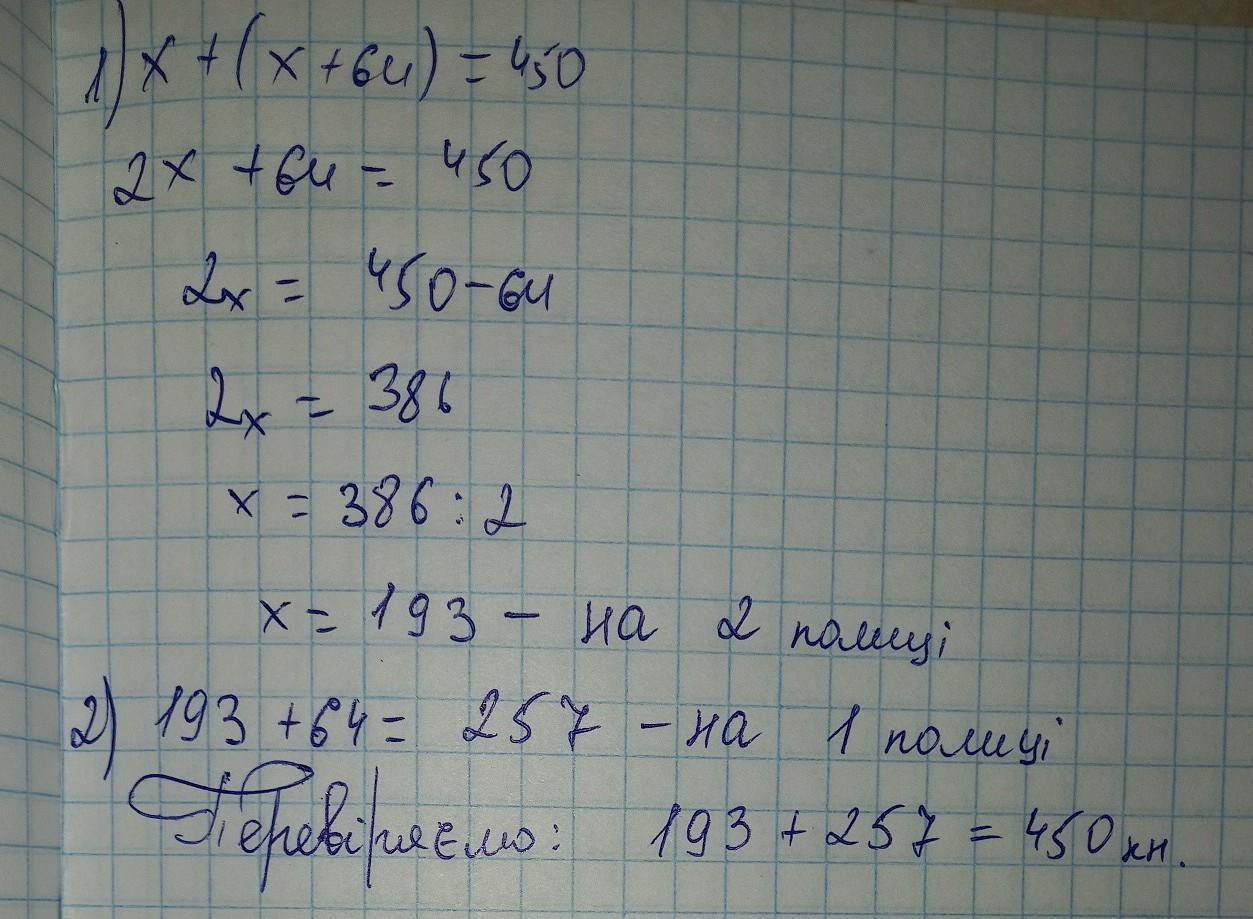 1) x + (x + 64) = 450
2x + 64 = 450
2x = 450 - 64
2x = 386
x = 386 : 2
x = 193 - на 2 полиці
2) 193 + 64 = 257 - на 1 полиці
Перевіряємо: 193 + 257 = 450 кн.